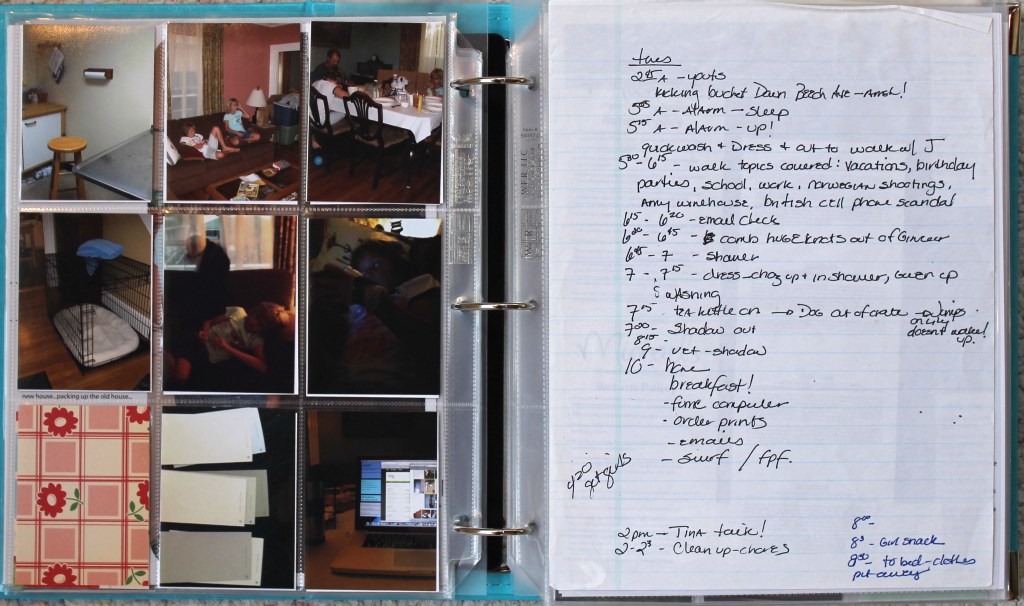 new house...packing up the old house...
WE R
tues
2 45 A - youts
kicking bucket Down Beech Ave - Amsl!
5 05 A - Alarm - sleep
5 15 A - Alarm - up!
quick wash + Dress + out to walk w/ J
5 30 - 6 15 - walk topics covered: vacations, birthday
parties, school, work, norwegian shootings,
Amy winehouse, british cell phone scandal
6 15 - 6 20 - email check
6 20 - 6 45 - comb HUGE knots out of Ginger
6 45 - 7 - shower
7 - 7 15 - dress - up + in shower, Gwen up
washing
7 15 tea kettle on → Dog out of crate →
doesn't wake up!
7 20 - Shadow out
8 15 -
9 - vet - shadow
10 - home
breakfast!
- time computer
- order prints
- emails
- surf / fpf.
4 30 get girls
2 pm - Tina talk!
2 - 2 45 - Clean up - chores
8 00 -
8 15 - Girl snack
8 30 - to bed - clothes
put away